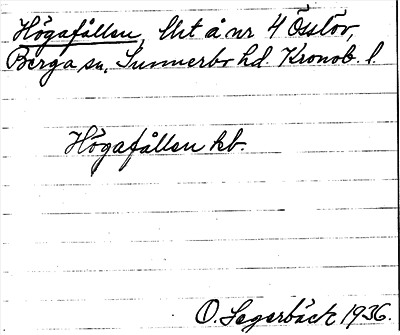 Högafållen, lht å nr 4 Össlöv,
Berga sn, Sunnerbo hd. Kronob. l.
Högafållen kb.
O. Segerbäck 1936.